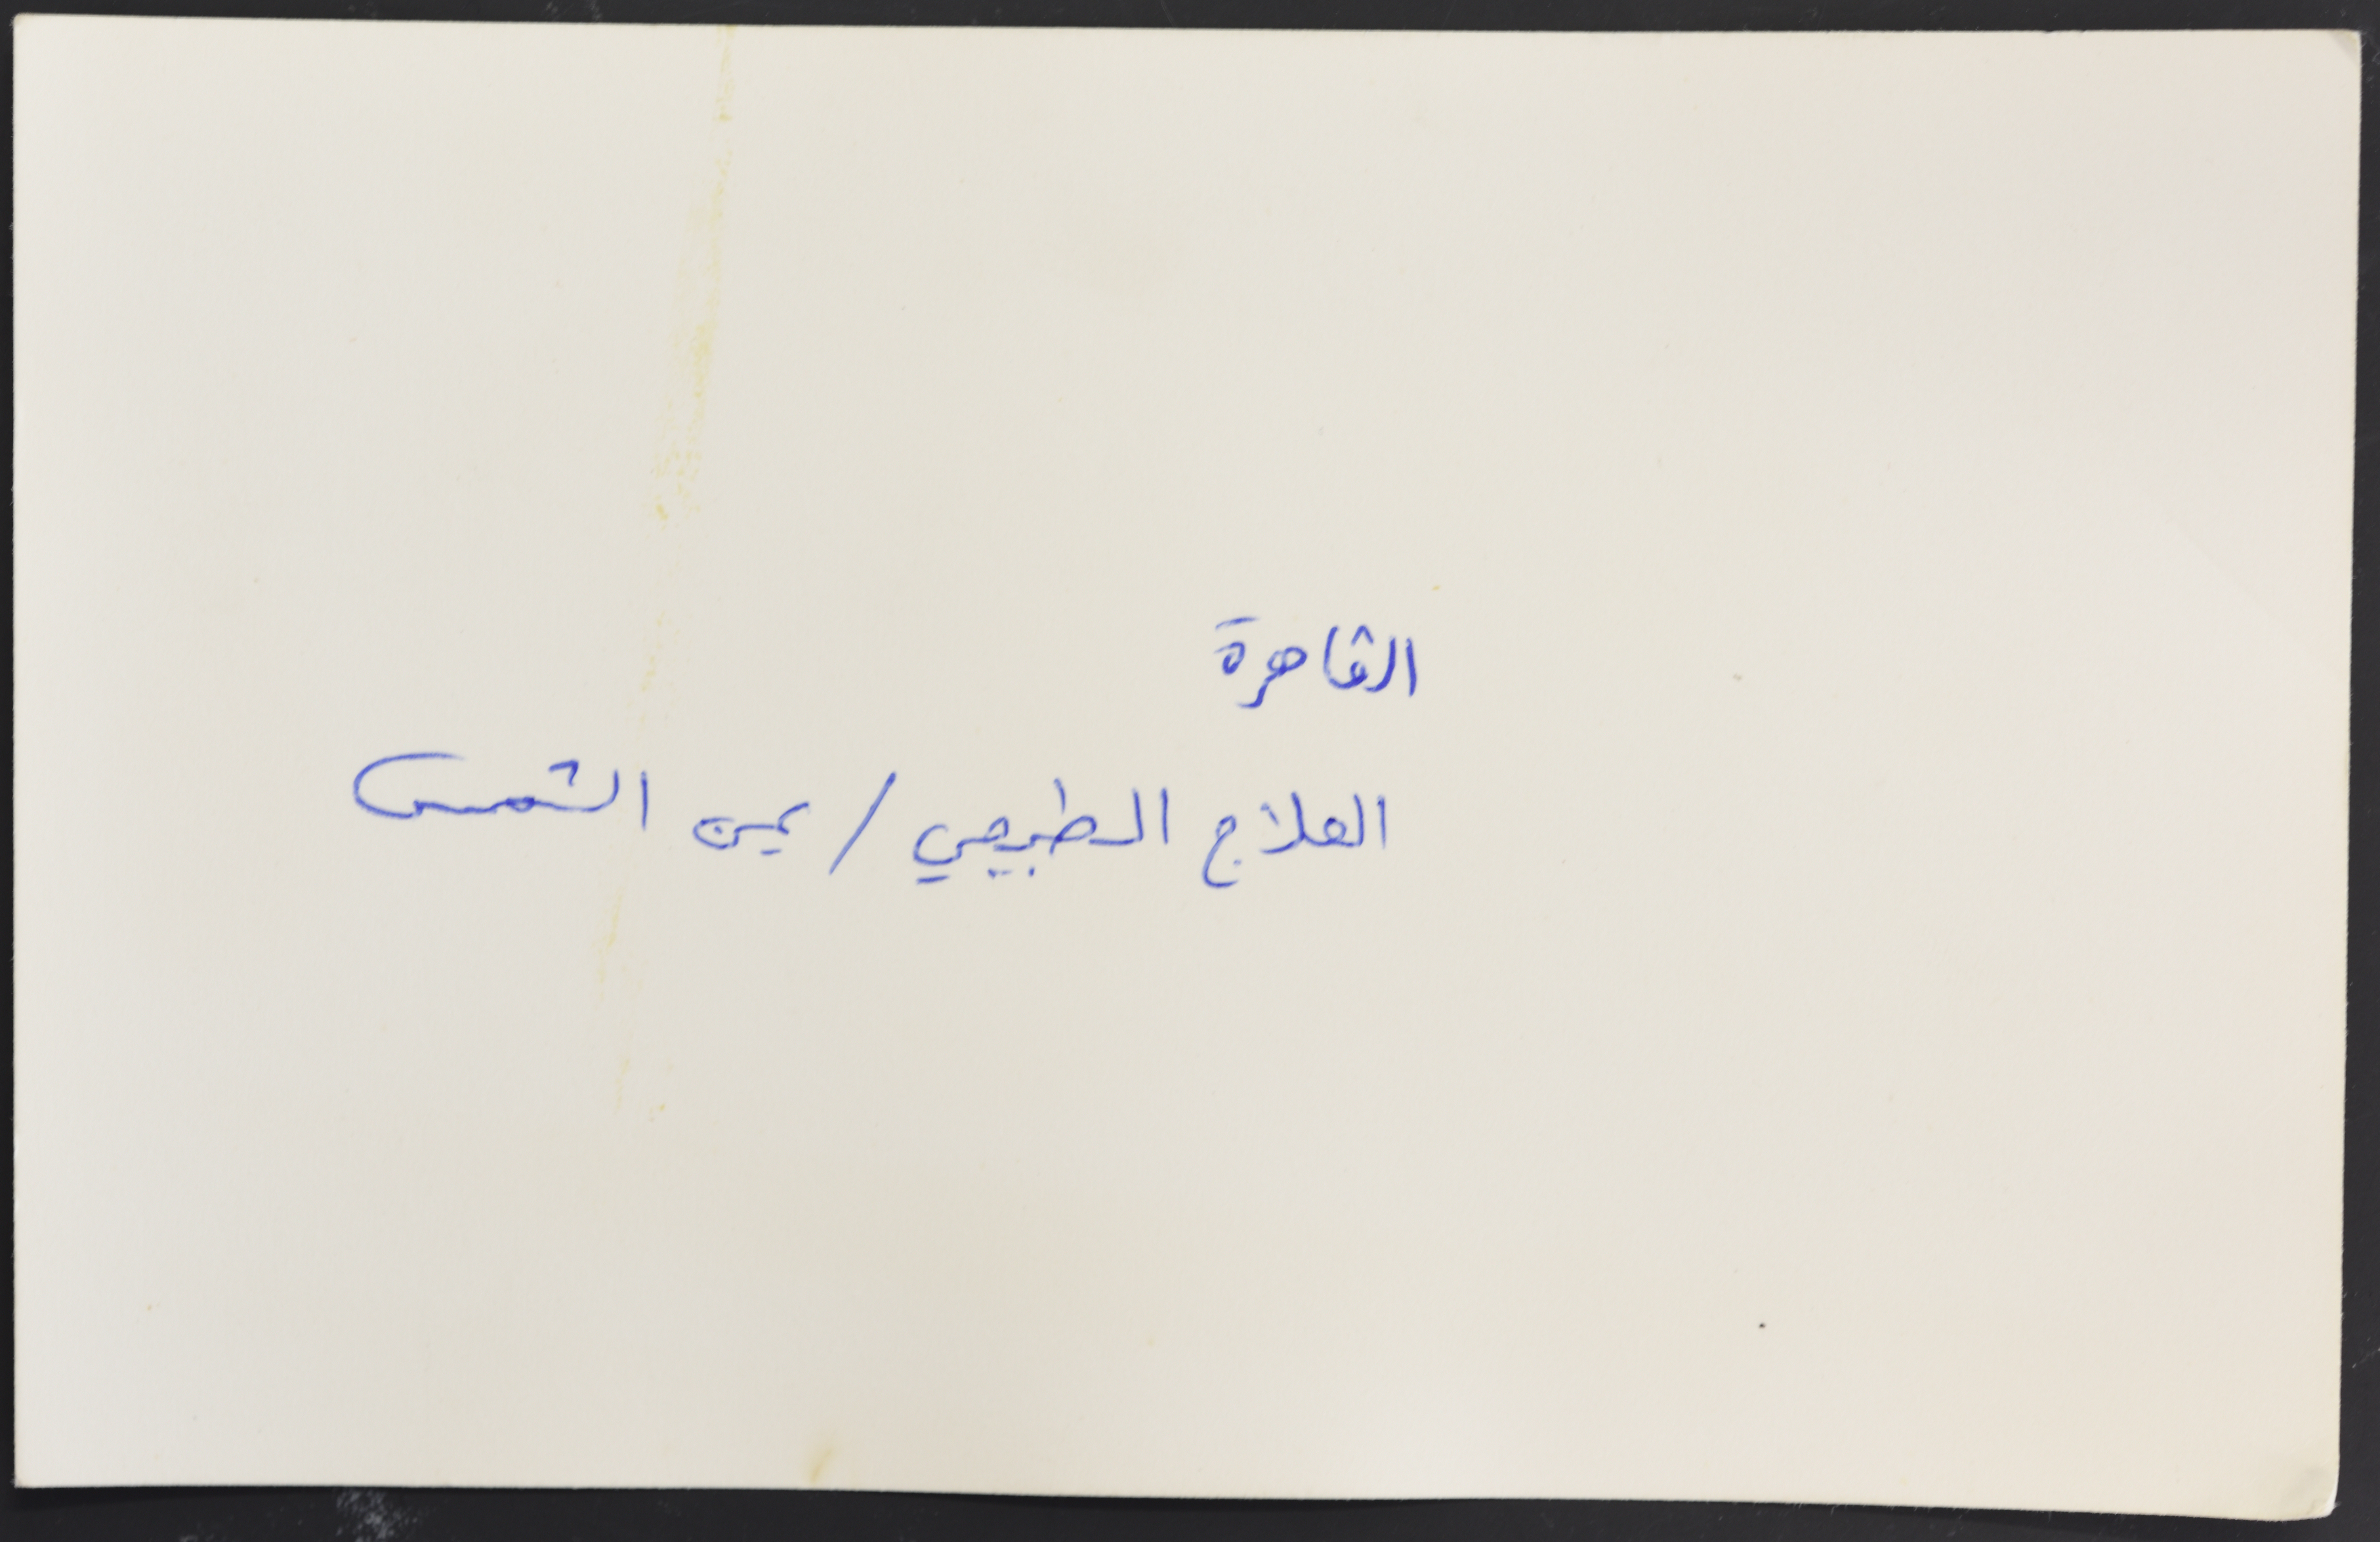 القاهرة
العلاج الطبيعي / عين الشمس